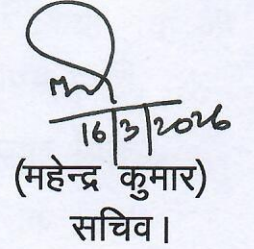 16/3/2026
(महेन्द्र कुमार)
सचिव।